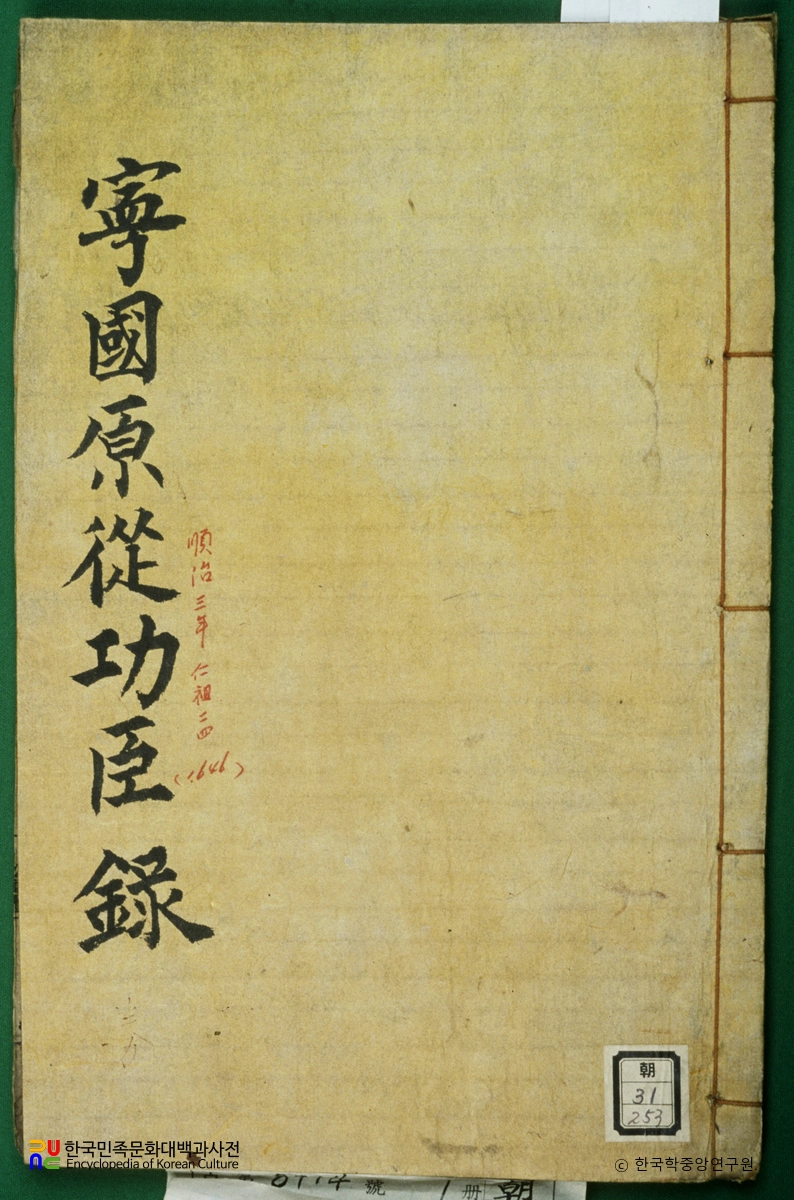 寧國原從功臣錄
順治三年 仁祖二四
(1646)
朝
31
253
한국민족문화대백과사전
Encyclopedia of Korean Culture
號 1 册 朝
© 한국학중앙연구원